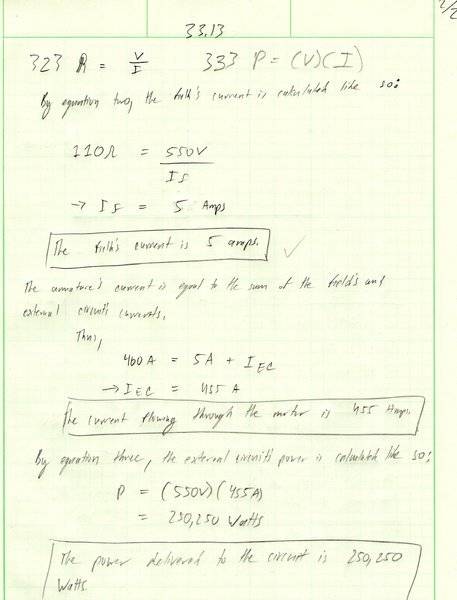 2/2
33.13
323 R = V/I 333 P = (V)(I)
By equation two, the field's current is calculated like so:
110Ω = 550V/If
→ If = 5 Amps
The field's current is 5 amps. ✓
The armature's current is equal to the sum of the field's and
external circuit's currents.
Thus,
460 A = 5A + IEC
→ IEC = 455 A
The current flowing through the motor is 455 Amps.
By equation three, the external circuit's power is calculated like so:
P = (550V)(455A)
= 250,250 Watts
The power delivered to the circuit is 250,250
Watts.